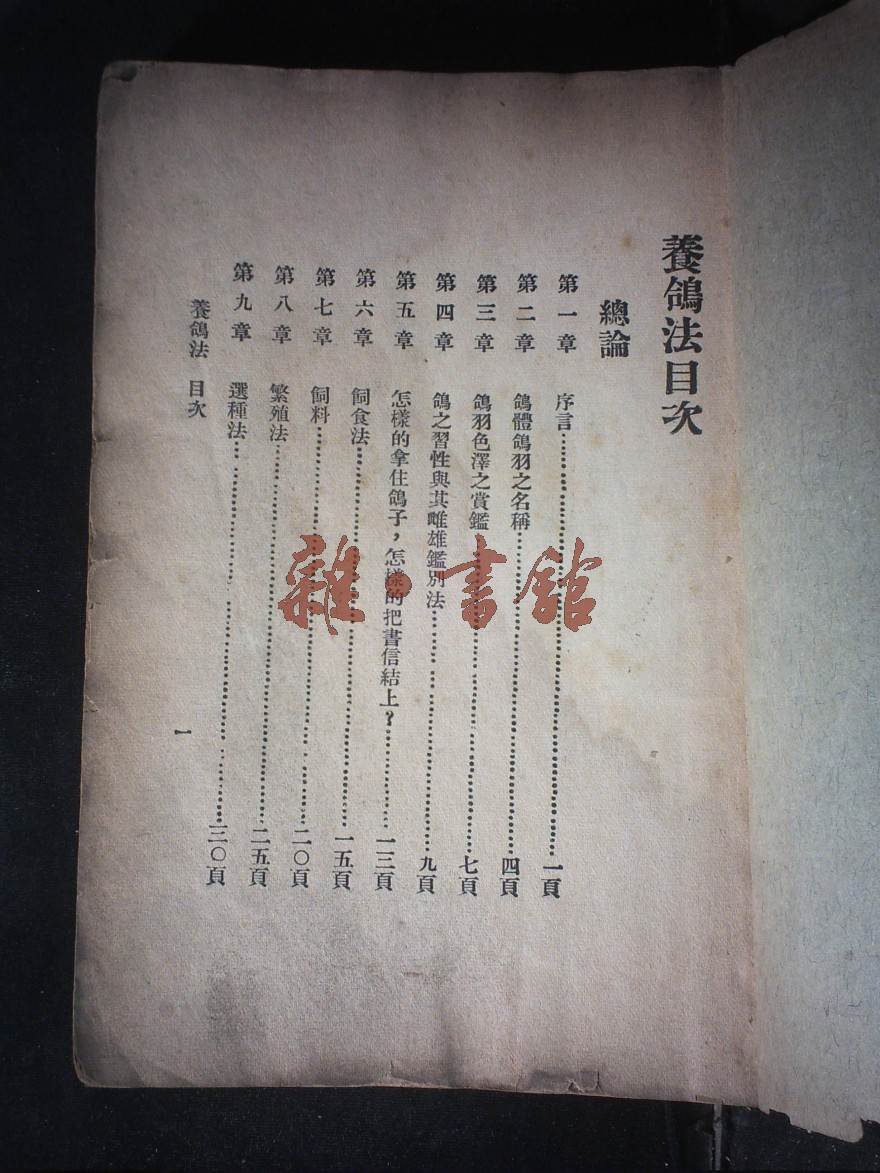 養鴿法目次
總論
第一章 序言……………………一頁
第二章 鴿體鴿羽之名稱……………………四頁
第三章 鴿羽色澤之賞鑑……………………七頁
第四章 鴿之習性與其雌雄鑑別法……………………九頁
第五章 怎樣的拿住鴿子，怎樣的把書信結上？……………………一三頁
第六章 飼食法……………………一五頁
第七章 飼料……………………二〇頁
第八章 繁殖法……………………二五頁
第九章 選種法……………………三〇頁
養鴿法 目次
一
雜·書館